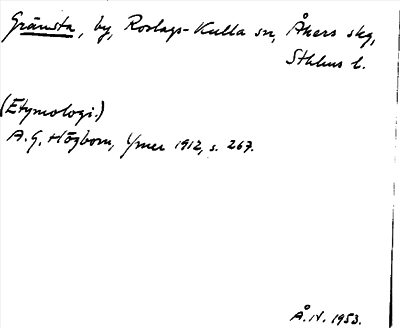 Gränsta, by, Roslags-Kulla sn, Åkers skg,
Sthlms l.
(Etymologi.)
A.G. Högbom, Ymer 1912, s. 267.
Å.N. 1953.